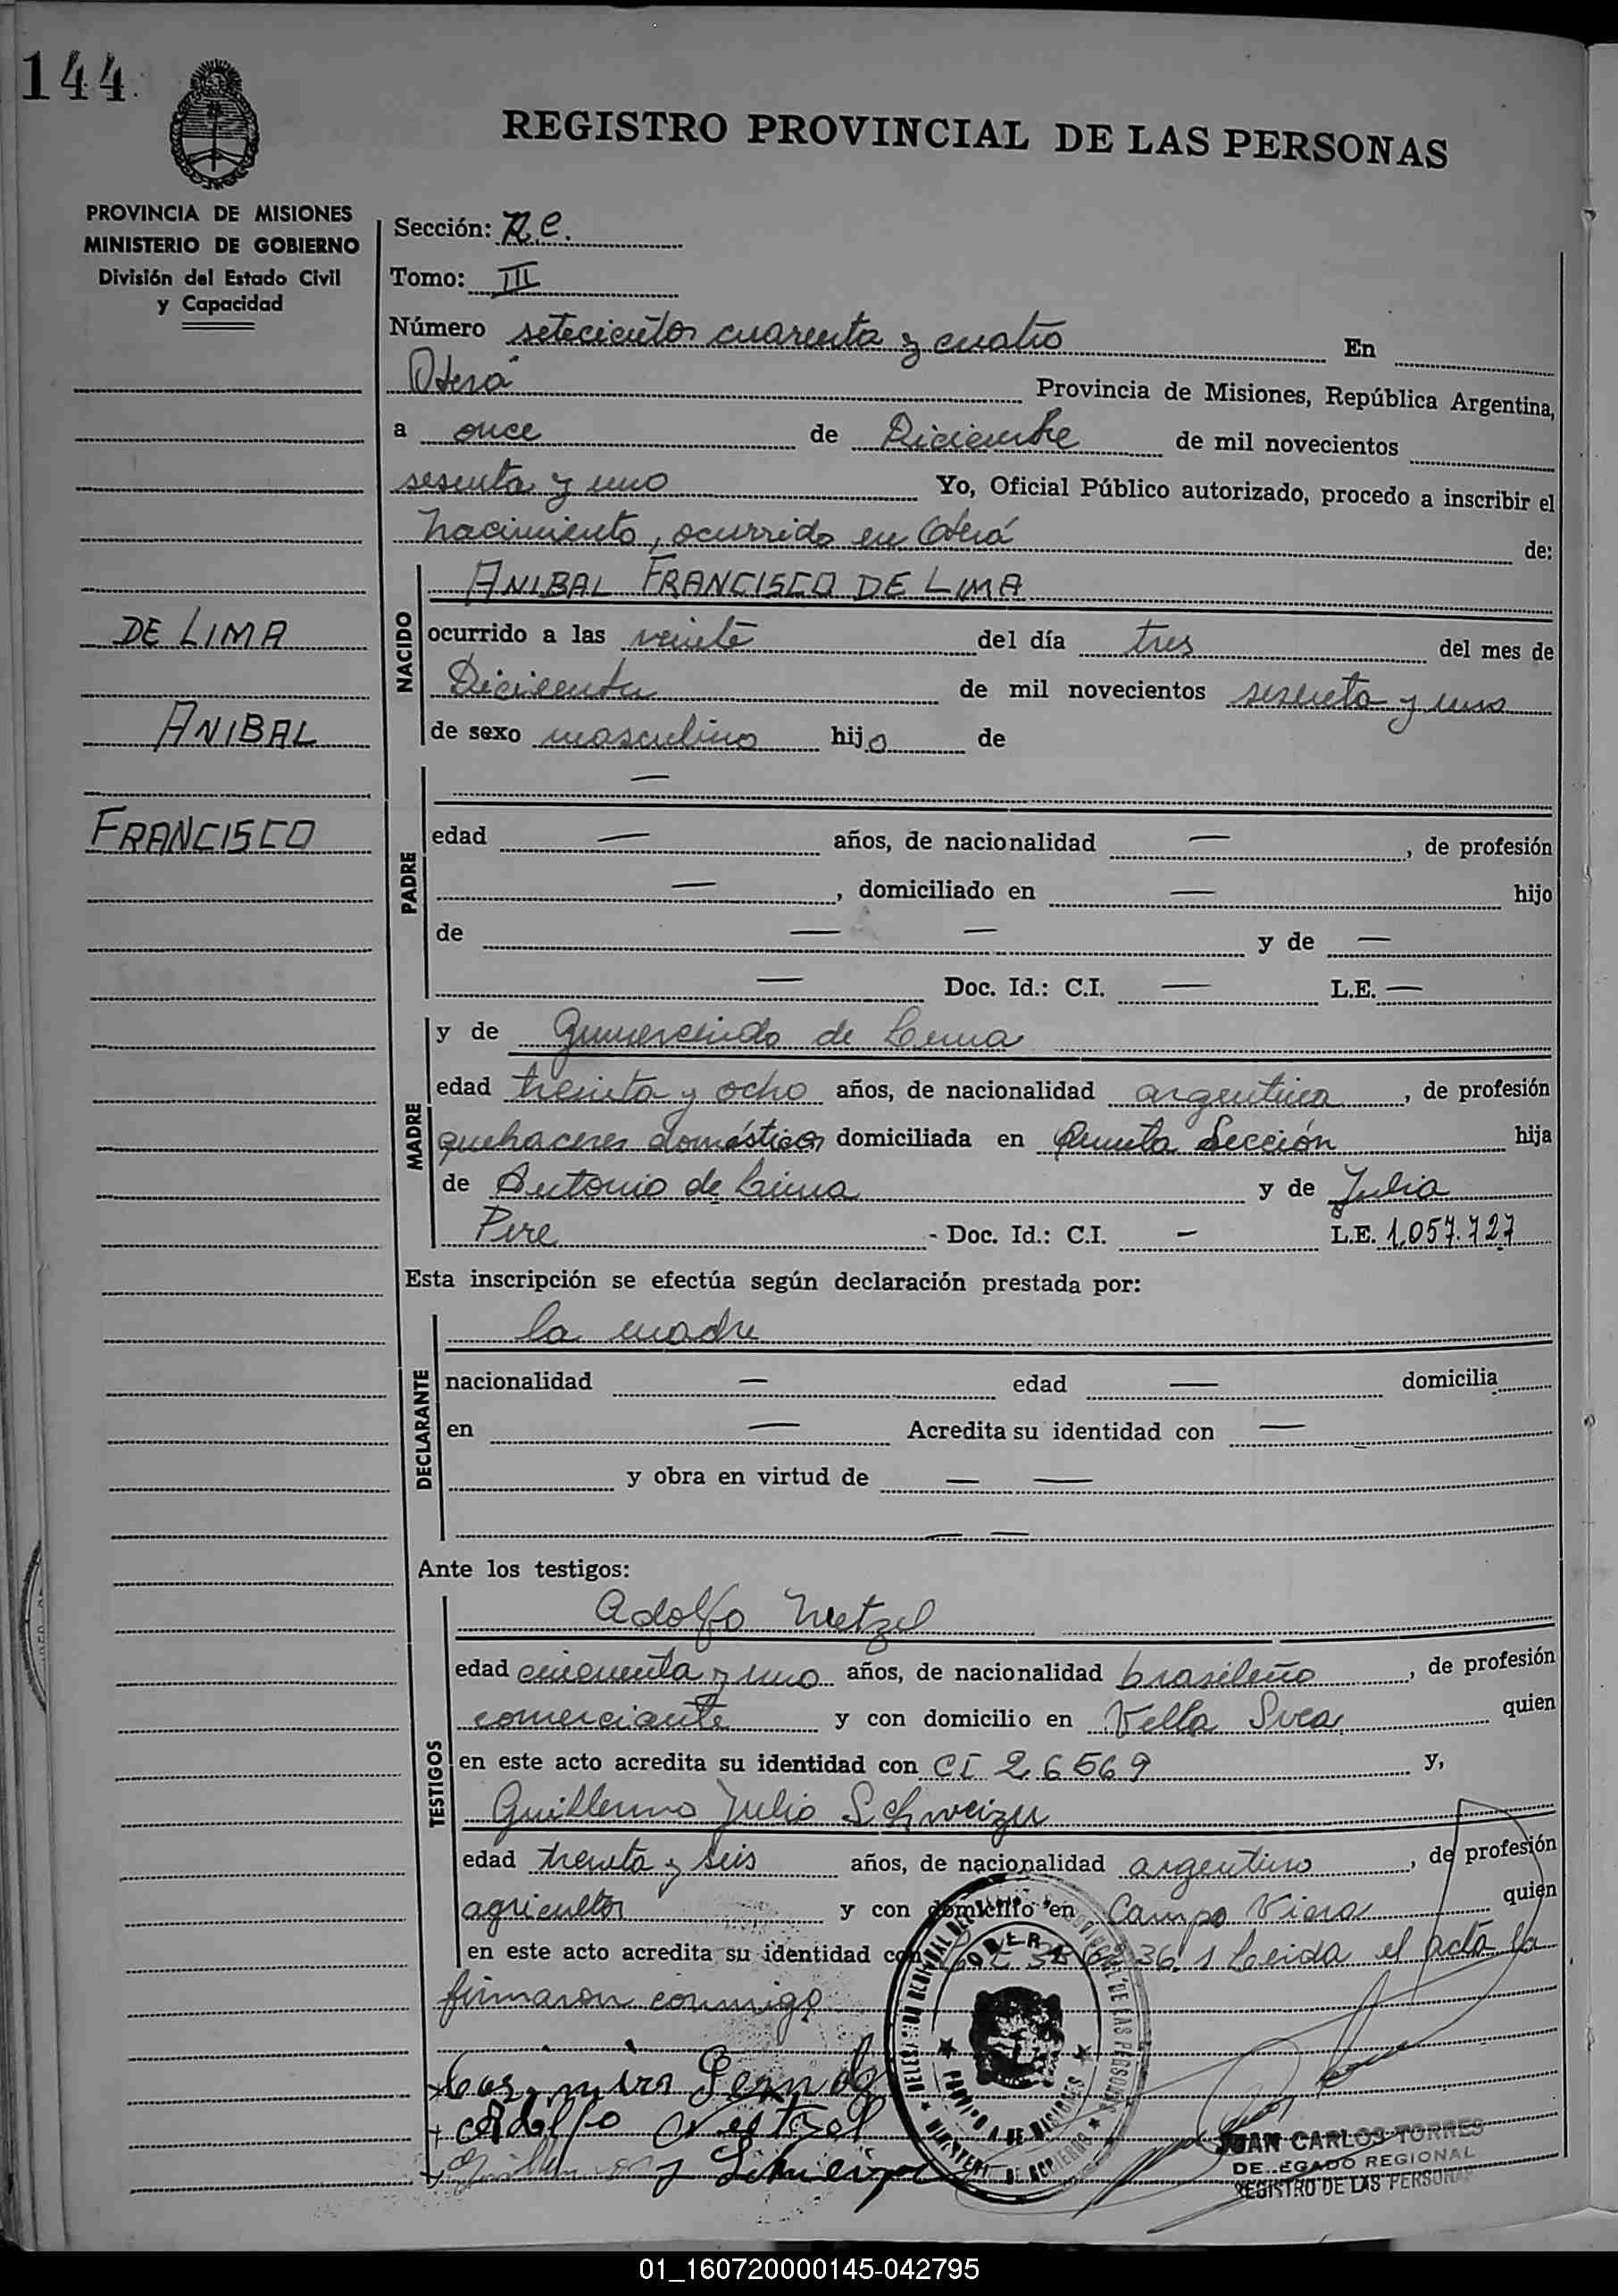 144
REGISTRO PROVINCIAL DE LAS PERSONAS
PROVINCIA DE MISIONES
MINISTERIO DE GOBIERNO
División del Estado Civil
y Capacidad
Sección: R.C.
Tomo: III
Número setecientos cuarenta y cuatro En
Oberá Provincia de Misiones, República Argentina,
a once de Diciembre de mil novecientos
sesenta y uno Yo, Oficial Público autorizado, procedo a inscribir el
nacimiento, ocurrido en Oberá de:
DE LIMA
ANIBAL
FRANCISCO
NACIDO
ANIBAL FRANCISCO DE LIMA
ocurrido a las veinte del día tres del mes de
Diciembre de mil novecientos sesenta y uno
de sexo masculino hijo de
PADRE
—
edad — años, de nacionalidad —, de profesión
—, domiciliado en — hijo
de — — y de —
— Doc. Id.: C.I. — L.E. —
MADRE
y de Gumercinda de Lima
edad treinta y ocho años, de nacionalidad argentina, de profesión
quehaceres domésticos domiciliada en Quinta Sección hija
de Antonio de Lima y de Julia
Pere - Doc. Id.: C.I. - L.E. 1.057.727
Esta inscripción se efectúa según declaración prestada por:
DECLARANTE
la madre
nacionalidad — edad — domicilia
en — Acredita su identidad con —
y obra en virtud de — —
— —
Ante los testigos:
TESTIGOS
Adolfo Netzel
edad cincuenta y uno años, de nacionalidad brasileño, de profesión
comerciante y con domicilio en Villa Svea quien
en este acto acredita su identidad con CI 26569 y,
Guillermo Julio Schweizer
edad treinta y seis años, de nacionalidad argentino, de profesión
agricultor y con domicilio en Campo Viera quien
en este acto acredita su identidad con Leida el acta la
firmaron conmigo
Adolfo Netzel
JUAN CARLOS TORRES
DELEGADO REGIONAL
REGISTRO DE LAS PERSONAS
01_160720000145-042795